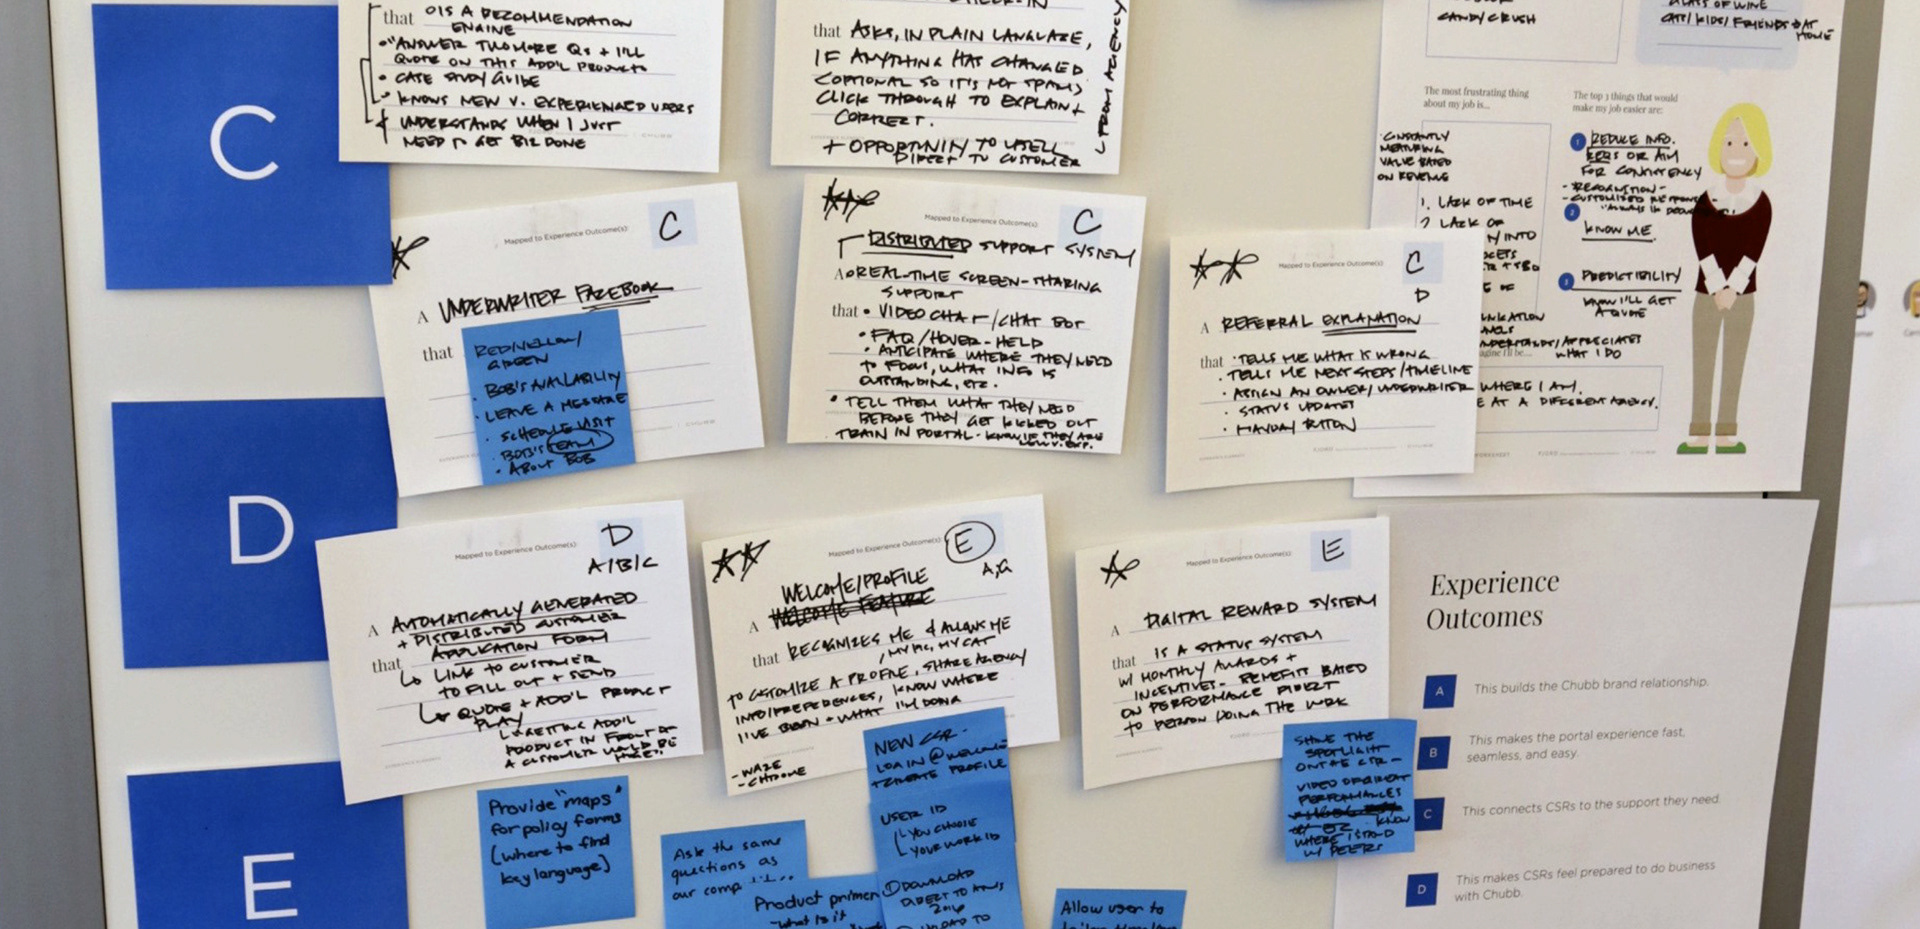 C
that
IS A RECOMMENDATION
ENGINE
• "ANSWER TWO MORE Qs + I'LL
QUOTE ON THIS ADD'L PRODUCT
• CASE STUDY GUIDE
• KNOWS NEW V. EXPERIENCED USERS
UNDERSTANDS WHEN I JUST
NEED TO GET BIZ DONE
CHECK-IN
that ASKS, IN PLAIN LANGUAGE,
IF ANYTHING HAS CHANGED
(OPTIONAL SO IT'S NOT SPAM)
CLICK THROUGH TO EXPLAIN +
CORRECT.
+ OPPORTUNITY TO UPSELL
DIRECT TO CUSTOMER
FROM AGENCY
CANDY CRUSH
GLASS OF WINE
CATS/KIDS/FRIENDS AT
HOME
The most frustrating thing
about my job is...
CONSTANTLY
MEASURING
VALUE BASED
ON REVENUE
1. LACK OF TIME
2 LACK OF
The top 3 things that would
make my job easier are:
1 REDUCE INFO.
REQS OR AIM
FOR CONSISTENCY
- RECOGNITION -
2
KNOW ME
3 PREDICTIBILITY
KNOW I'LL GET
A QUOTE
UNDERSTANDS/APPRECIATES
WHAT I DO
WHERE I AM.
AT A DIFFERENT AGENCY.
Mapped to Experience Outcome(s): C
A UNDERWRITER FACEBOOK
that
RED/YELLOW/
GREEN
• BOB'S AVAILABILITY
• LEAVE A MESSAGE
• SCHEDULE VISIT
• BOB'S TEAM
• ABOUT BOB
Mapped to Experience Outcome(s): C
DISTRIBUTED SUPPORT SYSTEM
A REAL-TIME SCREEN-SHARING
SUPPORT
that • VIDEO CHAT/CHAT BOT
• FAQ/HOVER-HELD
• ANTICIPATE WHERE THEY NEED
TO FOCUS, WHAT INFO IS
OUTSTANDING, ETC.
• TELL THEM WHAT THEY NEED
BEFORE THEY GET KICKED OUT
TRAIN IN PORTAL - KNOW IF THEY ARE
NEW V. EXP.
Mapped to Experience Outcome(s): C
D
A REFERRAL EXPLANATION
that • TELLS ME WHAT IS WRONG
• TELLS ME NEXT STEPS/TIMELINE
• ASSIGN AN OWNER/UNDERWRITER
• STATUS UPDATES
• MAYDAY BUTTON
D
Mapped to Experience Outcome(s): D
A/B/C
A AUTOMATICALLY GENERATED
+ DISTRIBUTED CUSTOMER
APPLICATION FORM
that
LINK TO CUSTOMER
TO FILL OUT + SEND
QUOTE + ADD'L PRODUCT
PLAY
GETTING ADD'L
PRODUCT IN FRONT OF
A CUSTOMER WOULD BE
HUGE!
Mapped to Experience Outcome(s): E
A,C
WELCOME/PROFILE
WELCOME FEATURE
A
that RECOGNIZES ME & ALLOWS ME
MY PIC, MY CAT
TO CUSTOMIZE A PROFILE, SHARE AGENCY
INFO/PREFERENCES, KNOW WHERE
I'VE BEEN + WHAT I'M DOING
- WAZE
- CHROME
Mapped to Experience Outcome(s): E
A DIGITAL REWARD SYSTEM
that IS A STATUS SYSTEM
W/ MONTHLY AWARDS +
INCENTIVES - BENEFITS BASED
ON PERFORMANCE DIRECT
TO PERSON DOING THE WORK
E
Provide "maps"
for policy forms
(where to find
key language)
Ask the same
questions as
our
Product primer
- what is it
NEW CSR-
LOGIN @ WELCOME
+ CREATE PROFILE
USER ID
YOU CHOOSE
YOUR WORK ID
DOWNLOAD
DIRECT TO
Allow user to
SHINE THE
SPOTLIGHT
ON THE CSR -
VIDEO OF GREAT
PERFORMANCES
KNOW
WHERE I STAND
W/ PEERS
Experience
Outcomes
A This builds the Chubb brand relationship.
B This makes the portal experience fast,
seamless, and easy.
C This connects CSRs to the support they need.
D This makes CSRs feel prepared to do business
with Chubb.